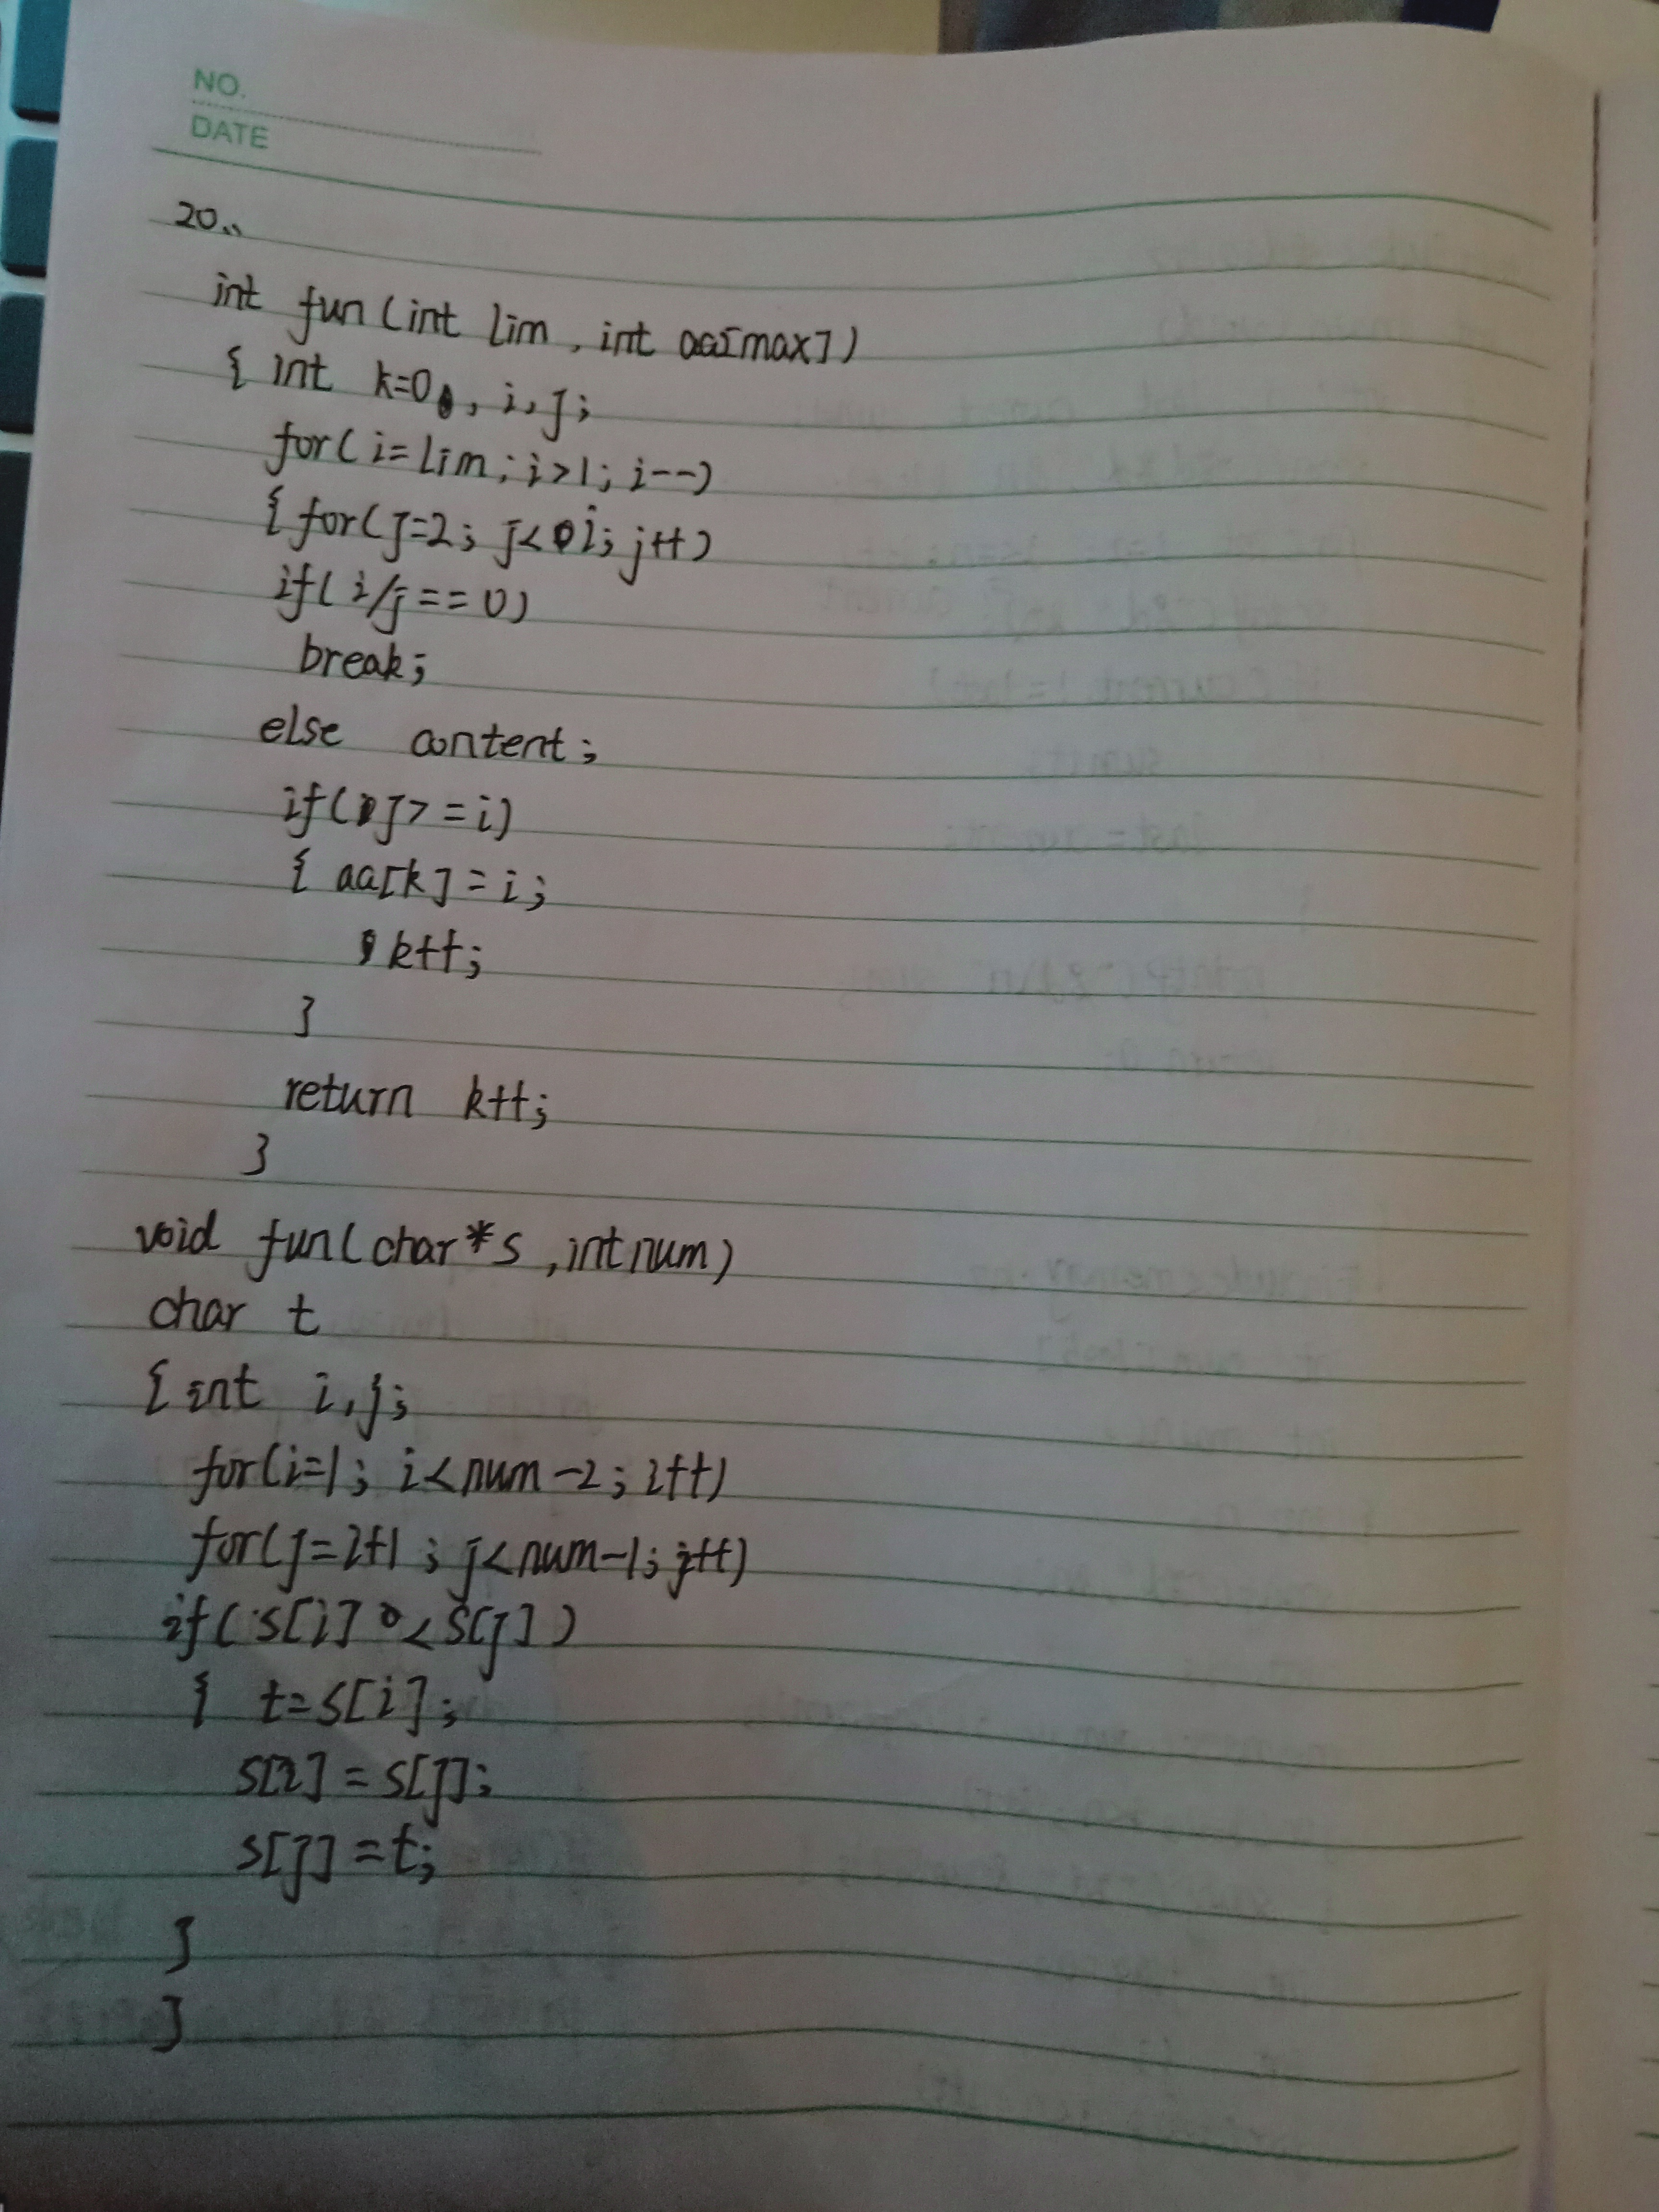 NO.
DATE
20..
int fun(int lim, int aa[max])
{ int k=0, i, j;
for(i=lim; i>1; i--)
{ for(j=2; j<i; j++)
if(i/j==0)
break;
else content;
if(j>=i)
{ aa[k]=i;
k++;
}
return k++;
}
void fun(char*s, int num)
char t
{int i,j;
for(i=1; i<num-2; i++)
for(j=i+1; j<num-1; j++)
if(s[i]<s[j])
{ t=s[i];
s[i]=s[j];
s[j]=t;
}
}